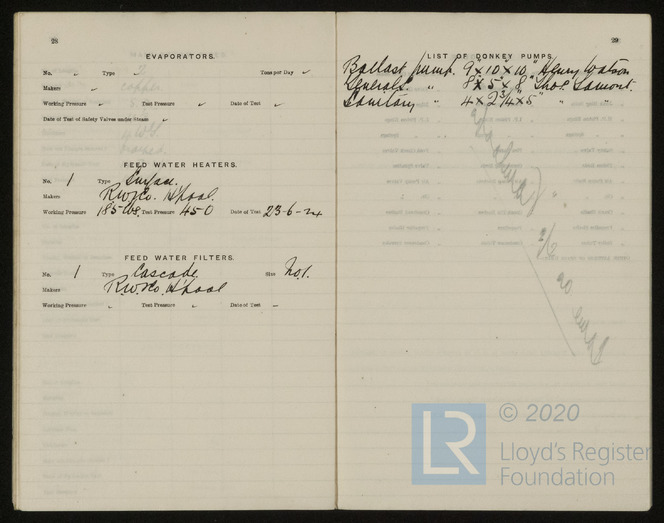 28
EVAPORATORS.
No. Type Tons per Day
Makers
Working Pressure Test Pressure Date of Test
Date of Test of Safety Valves under Steam
FEED WATER HEATERS.
No. 1 Type Surface.
Makers R.W. & Co. H'pool.
Working Pressure 185 lbs. Test Pressure 450 Date of Test 23-6-24
FEED WATER FILTERS.
No. 1 Type Cascade. Size No. 1.
Makers R.W. & Co. H'pool
Working Pressure Test Pressure Date of Test
29
LIST OF DONKEY PUMPS.
Ballast pump. 9" x 10" x 10" Henry Watson
General " 8" x 5" x 8" Thos. Lamont.
Sanitary " 4 x 2 3/4 x 5" " "
LR
© 2020
Lloyd's Register
Foundation